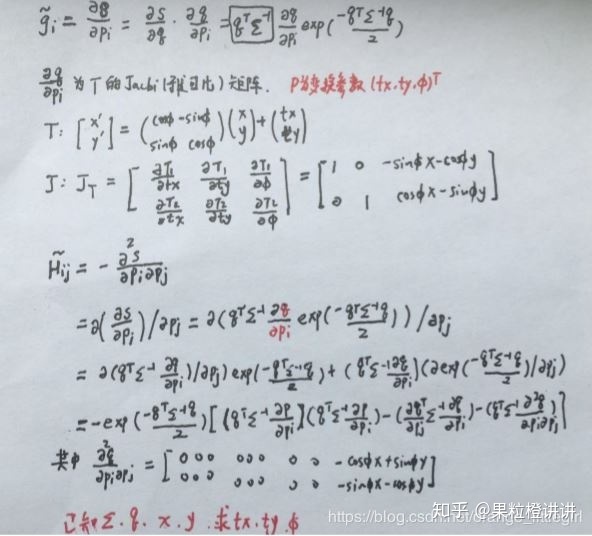 g̃i = ∂g/∂pi = ∂s/∂q · ∂q/∂pi = qᵀΣ⁻¹ ∂q/∂pi exp(-qᵀΣ⁻¹q/2)
∂q/∂pi 为T的Jacbi(雅可比)矩阵. P为变换参数(tx.ty.φ)ᵀ
T: [x' y'] = (cosφ -sinφ sinφ cosφ)(x y)+(tx ty)
J: J_T = [∂T1/∂tx ∂T1/∂ty ∂T1/∂φ ∂T2/∂tx ∂T2/∂ty ∂T2/∂φ] = [1 0 -sinφx-cosφy 0 1 cosφx-sinφy]
H̃ij = - ∂²s/∂pi∂pj
=∂(∂s/∂pi)/∂pj = ∂(qᵀΣ⁻¹ ∂q/∂pi exp(-qᵀΣ⁻¹q/2))/∂pj
= ∂(qᵀΣ⁻¹ ∂q/∂pi)/∂pj) exp(-qᵀΣ⁻¹q/2) + (qᵀΣ⁻¹∂q/∂pi)(∂exp(-qᵀΣ⁻¹q/2)/∂pj)
=-exp(-qᵀΣ⁻¹q/2)[(qᵀΣ⁻¹ ∂p/∂pi)(qᵀΣ⁻¹ ∂p/∂pj)-(∂qᵀ/∂pj Σ⁻¹ ∂q/∂pi)-(qᵀΣ⁻¹ ∂²q/∂pi∂pj)]
其中 ∂²q/∂pi∂pj = [000 000 0 0 -cosφx+sinφy 000 000 0 0 -sinφx-cosφy]
已知Σ.q.x.y.求tx.ty.φ
知乎 @果粒橙讲讲